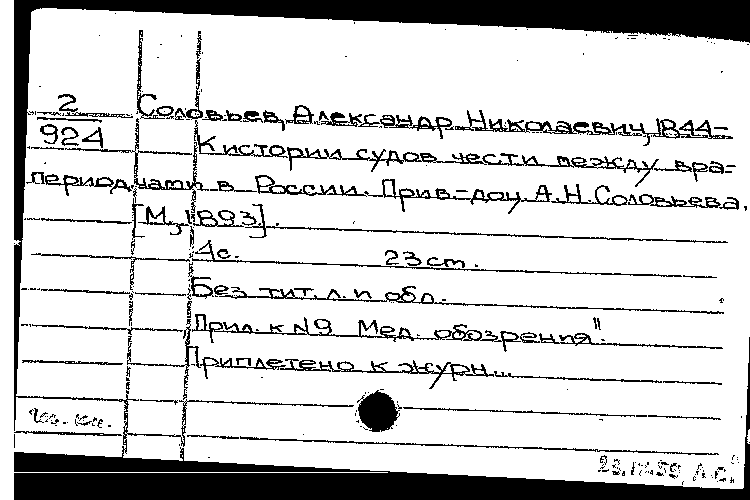 2
924
Соловьев, Александр Николаевич, 1844-
К истории судов чести между вра-
период. чами в России. Прив-доц. А.Н. Соловьева.
[М., 1893].
4с. 23 см.
Без тит. л. и обл.
Прил. к №9 Мед. обозрения".
Приплетено к журн...
А.С.